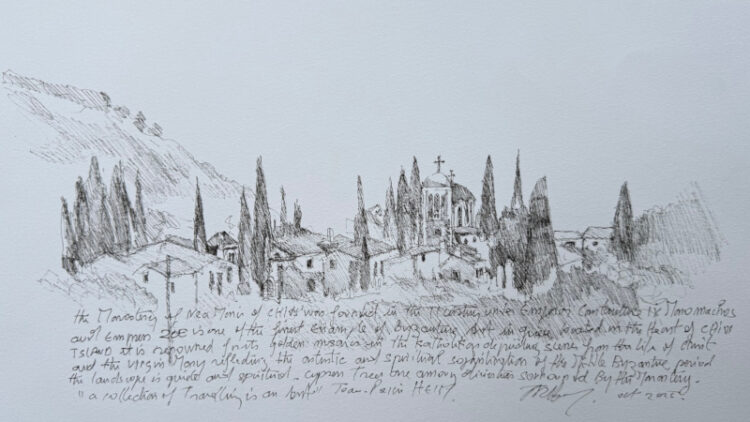 the Monastery of Nea Moni of CHIOS was founded in the 11 century under Emperor Constantine IX Monomachos
and Empress ZOE is one of the finest Example of Byzantine Art in greece located in the heart of CHIOS
ISLAND it is renowned for its golden mosaics in the Katholikon depicting scene from the life of christ
and the virgin Mary reflecting the artistic and spiritual sophistication of the Middle Byzantine period
the landscape is quiet and spiritual. cypress trees are among olive trees surrounded By the Monastery.
"a collection of Travelling is an Art"
oct 202